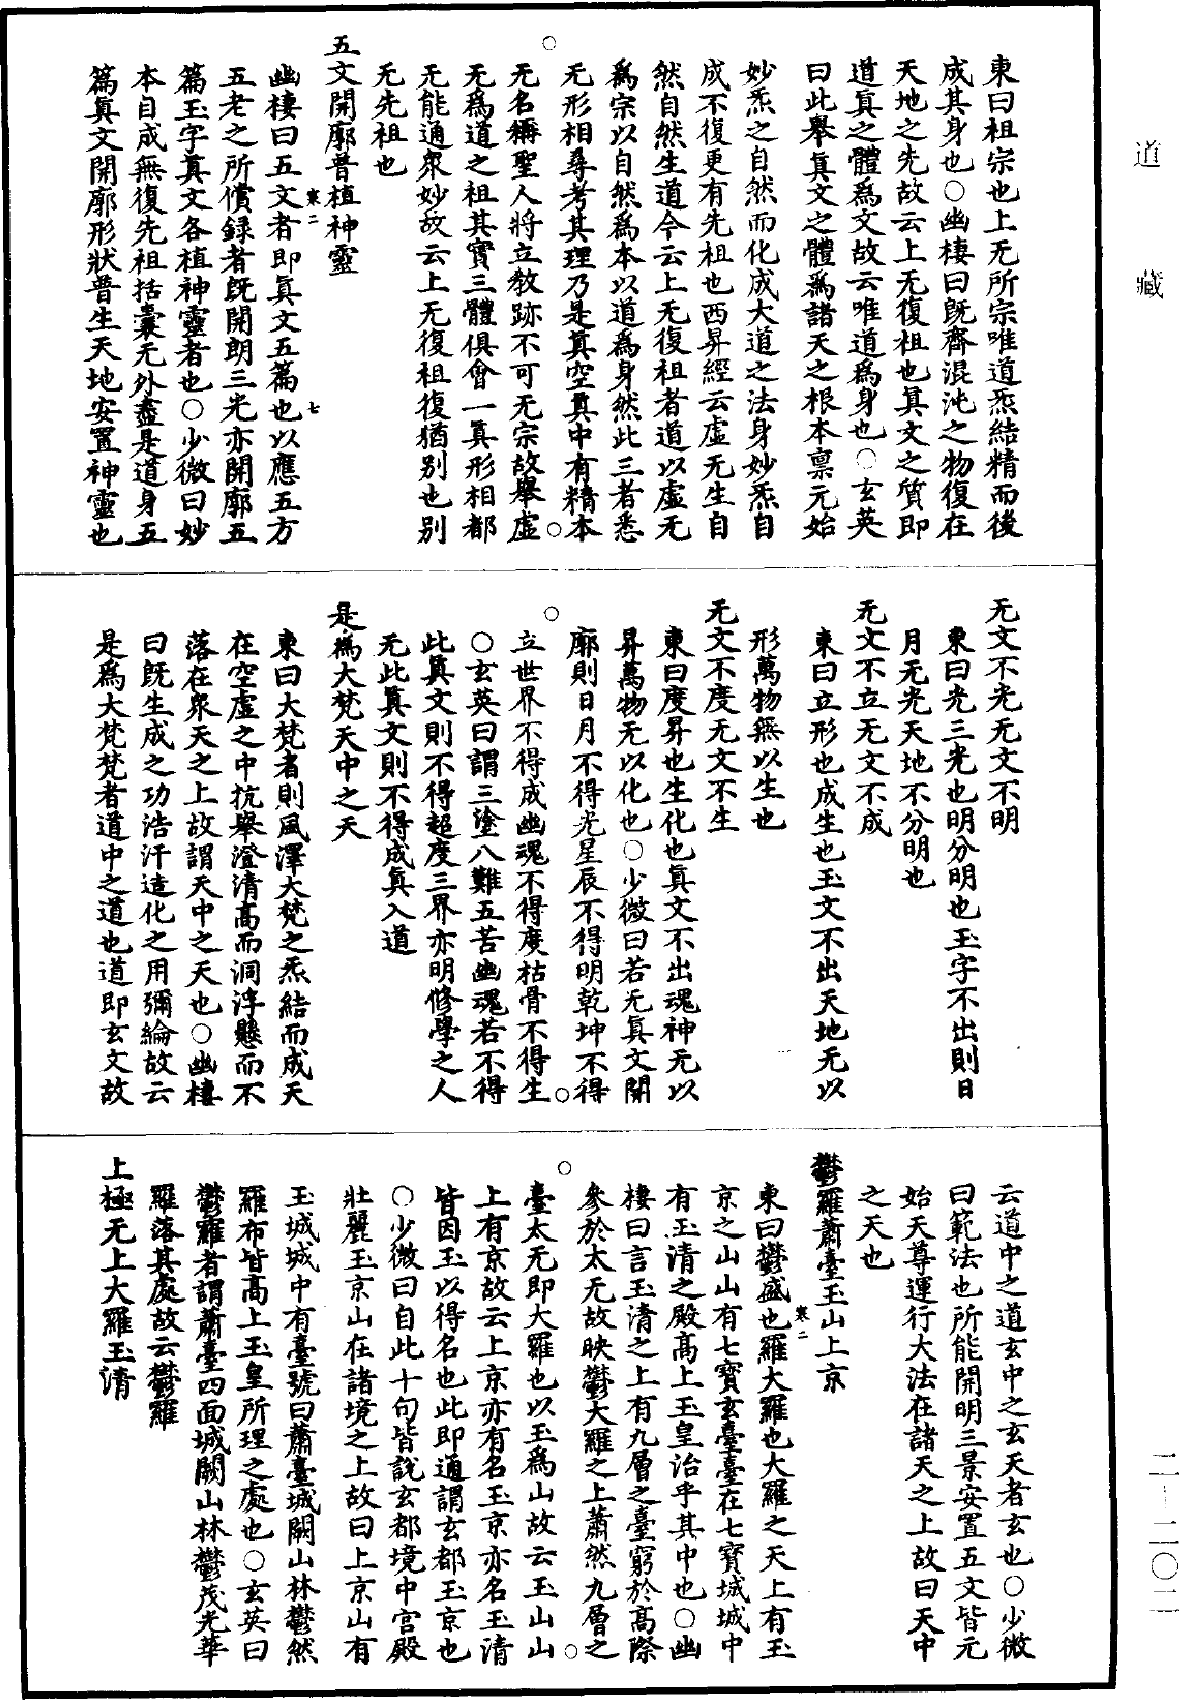 東曰祖宗也上无所宗唯道炁結精而後
成其身也○幽棲曰旣齊混沌之物復在
天地之先故云上无復祖也眞文之質即
道眞之體爲文故云唯道爲身也○玄英
曰此舉眞文之體爲諸天之根本禀元始
妙炁之自然而化成大道之法身妙炁自
成不復更有先祖也西昇經云虛无生自
然自然生道今云上无復祖者道以虛无
爲宗以自然爲本以道爲身然此三者悉
无形相尋考其理乃是眞空眞中有精本
无名稱聖人將立敎跡不可无宗故舉虛
无爲道之祖其實三體俱會一眞形相都
无能通衆妙故云上无復祖復猶別也別
无先祖也
五文開廓普植神靈
寒二
七
幽棲曰五文者即眞文五篇也以應五方
五老之所償錄者旣開朗三光亦開廓五
篇玉字眞文各植神靈者也○少微曰妙
本自成無復先祖括囊无外盡是道身五
篇眞文開廓形狀普生天地安置神靈也
无文不光无文不明
東曰光三光也明分明也玉字不出則日
月无光天地不分明也
无文不立无文不成
東曰立形也成生也玉文不出天地无以
形萬物無以生也
无文不度无文不生
東曰度昇也生化也眞文不出魂神无以
昇萬物无以化也○少微曰若无眞文開
廓則日月不得光星辰不得明乾坤不得
立世界不得成幽魂不得度枯骨不得生
○玄英曰謂三塗八難五苦幽魂若不得
此眞文則不得超度三界亦明修學之人
无此眞文則不得成眞入道
是爲大梵天中之天
東曰大梵者則風澤大梵之炁結而成天
在空虛之中抗舉澄清高而洞浮懸而不
落在衆天之上故謂天中之天也○幽棲
曰旣生成之功浩汗造化之用彌綸故云
是爲大梵梵者道中之道也道即玄文故
云道中之道玄中之玄天者玄也○少微
曰範法也所能開明三景安置五文皆元
始天尊運行大法在諸天之上故曰天中
之天也
鬱羅蕭臺玉山上京
寒二
東曰鬱盛也羅大羅也大羅之天上有玉
京之山山有七寶玄臺臺在七寶城城中
有玉清之殿高上玉皇治乎其中也○幽
棲曰言玉清之上有九層之臺窮於高際
參於太无故映鬱大羅之上蕭然九層之
臺太无即大羅也以玉爲山故云玉山山
上有京故云上京亦有名玉京亦名玉清
皆因玉以得名也此即通謂玄都玉京也
○少微曰自此十句皆說玄都境中宮殿
壯麗玉京山在諸境之上故曰上京山有
玉城城中有臺號曰蕭臺城闕山林鬱然
羅布皆高上玉皇所理之處也○玄英曰
鬱羅者謂蕭臺四面城闕山林鬱茂光華
羅落其處故云鬱羅
上極无上大羅玉清
道藏
二—二〇二